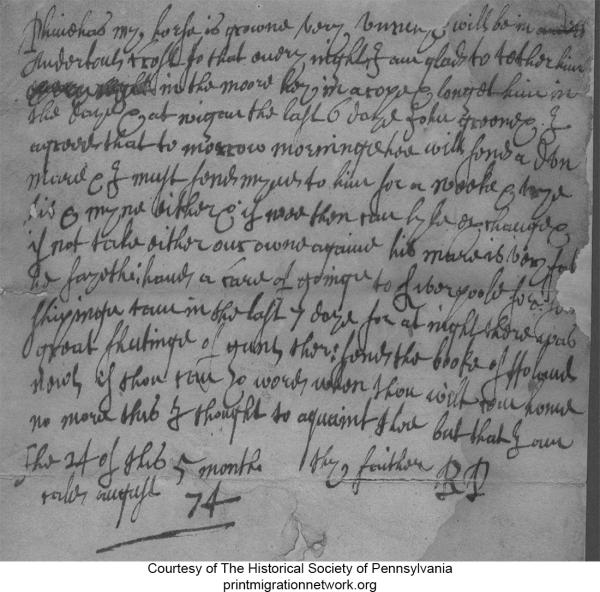 Phinehas my horse is growne very unruly & will be in
Anderton's croft so that every night I am glad to tether him
in the moore hey in a rope & longet him in
the daye & at wigan the last 6 daye John greene & I
agreed that to morrow morninge hee will send a don
mare & I must send myne to him for a weeke & trye
his & myne either & if wee then can lyke exchange &
if not take either our owne againe his mare is very fat
he sayeth: have a care of goinge to Liverpoole for
shipinge came in the last 7 daye for at night there was
great shutinge of guns there: send the booke of Holand
newes if thou can so word when thou wilt com home
no more this I thought to aquaint thee but that I am
The 24 of this 5 monthe thy father RP
caled august 74
Courtesy of The Historical Society of Pennsylvania
printmigrationnetwork.org